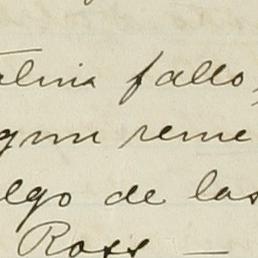 alina fallo,
gun reme
elgo de las
Ross —